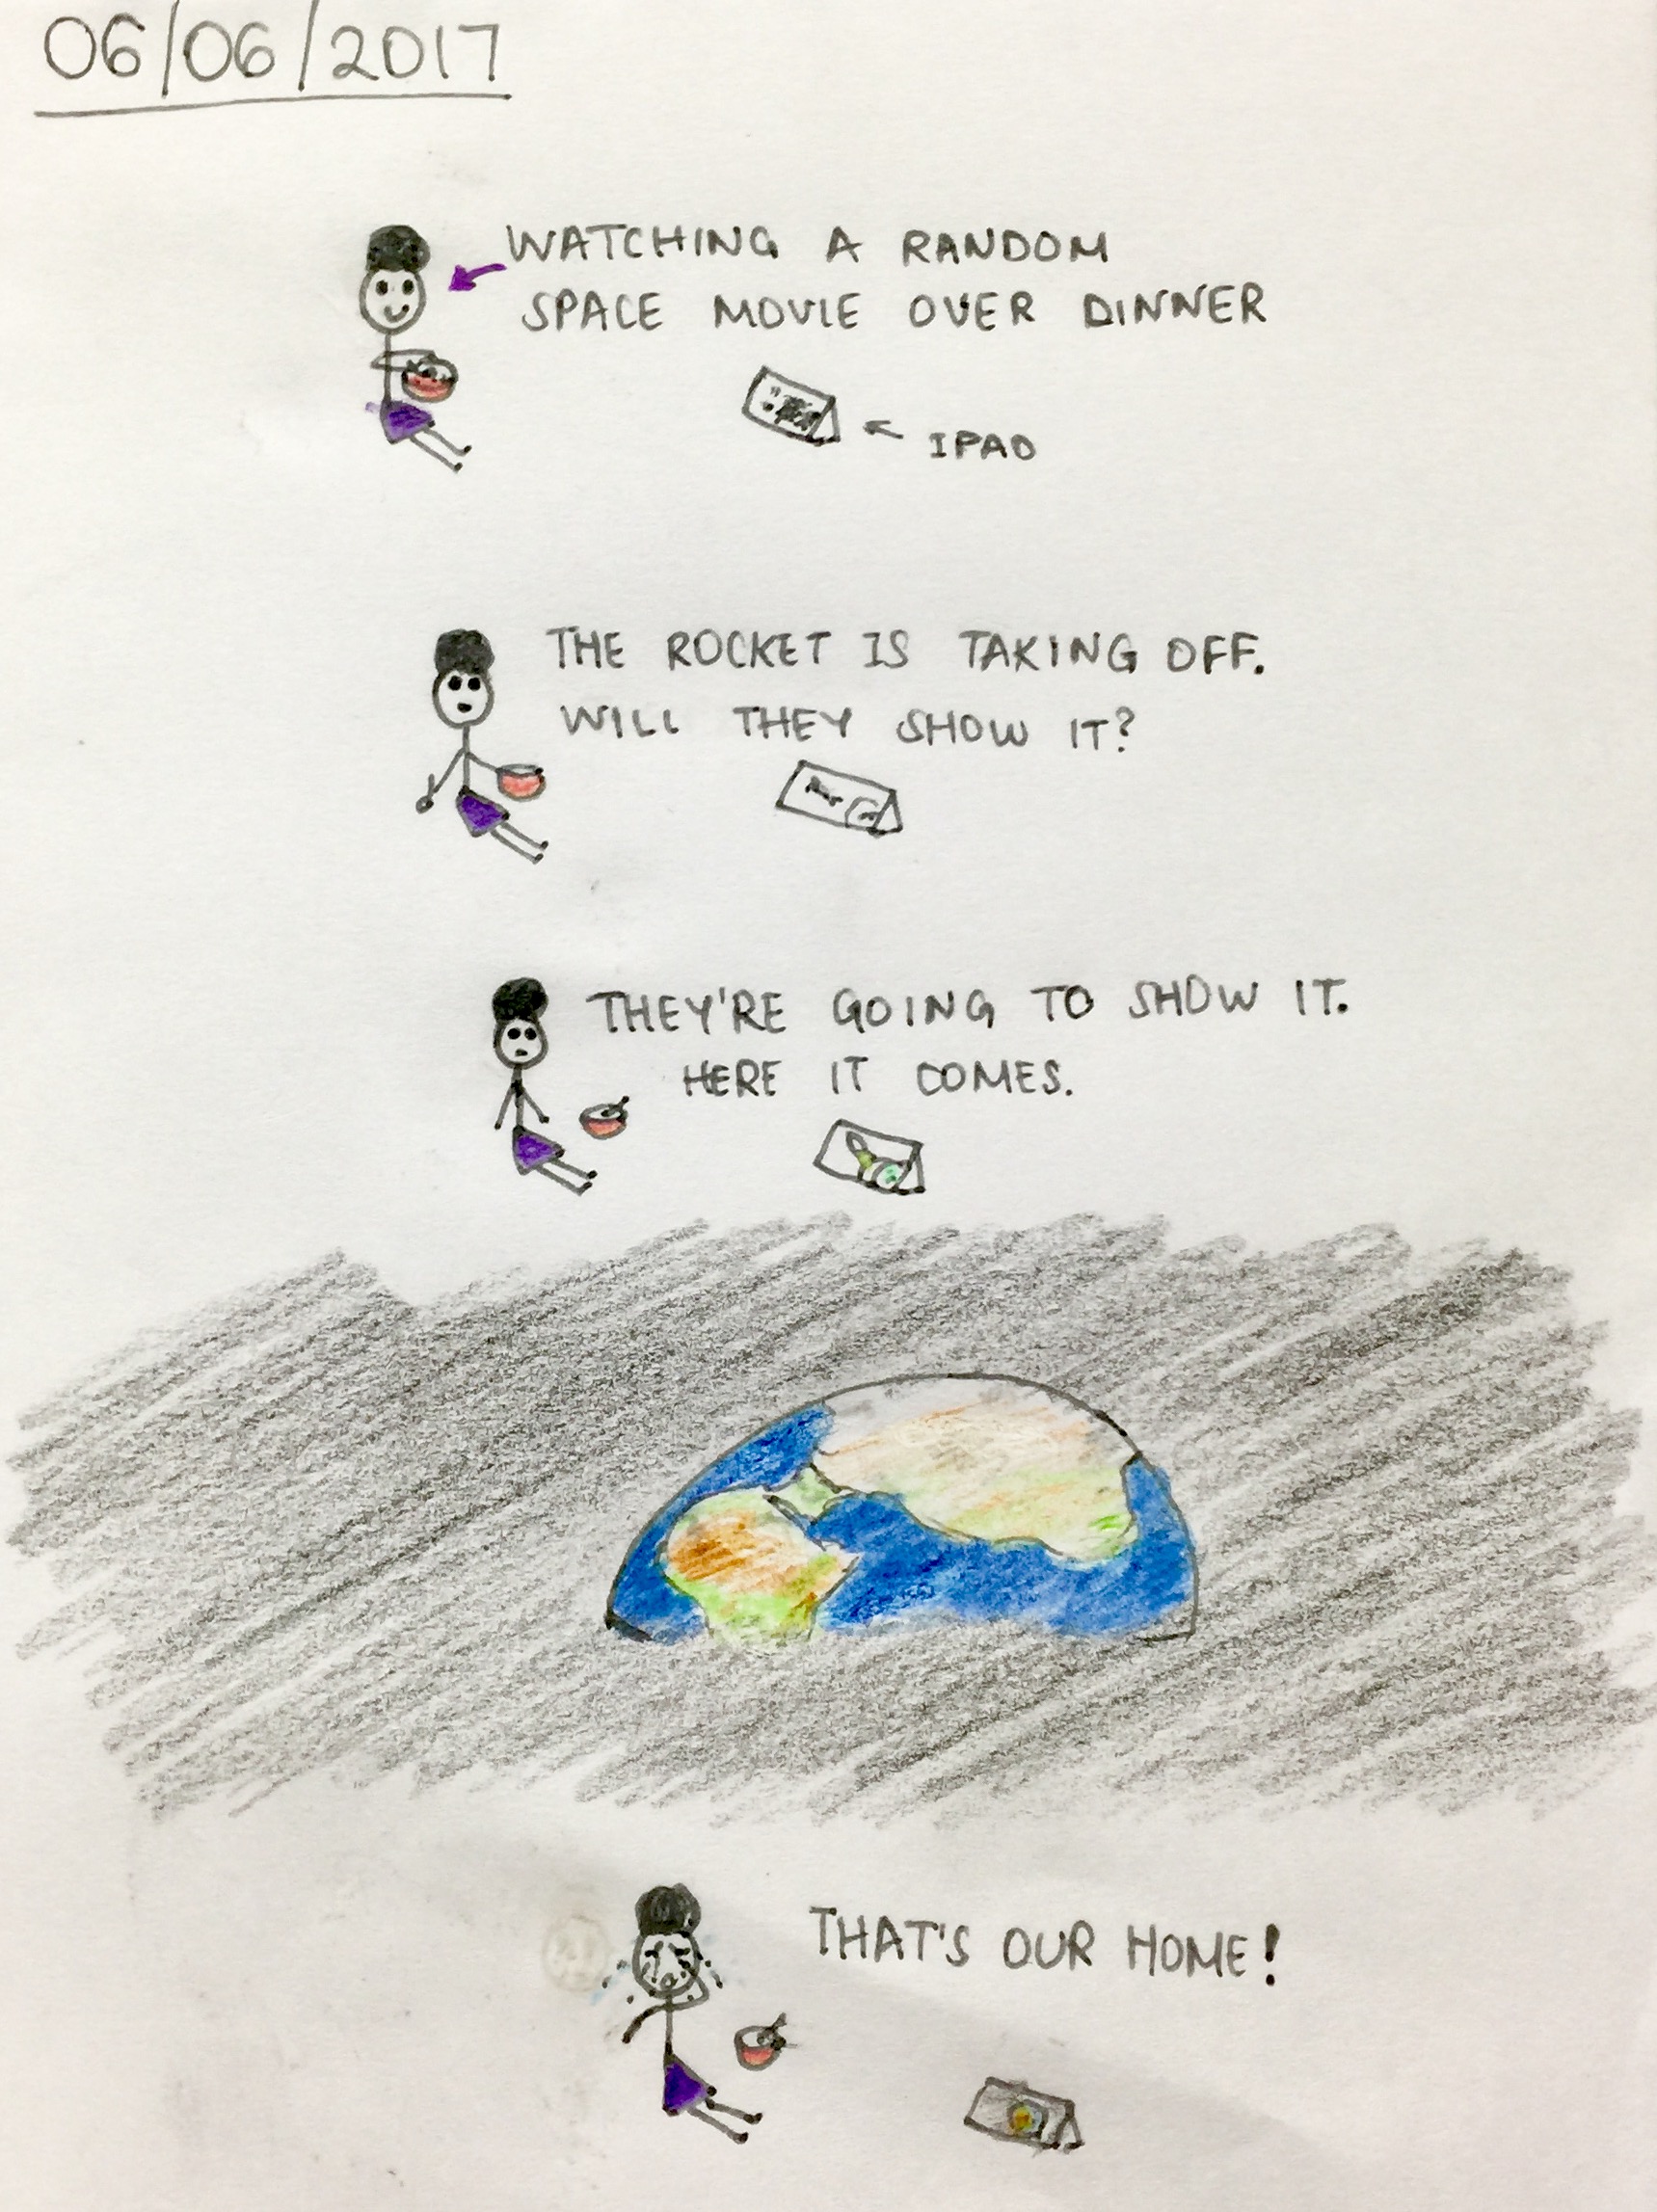 06/06/2017
WATCHING A RANDOM
SPACE MOVIE OVER DINNER
IPAD
THE ROCKET IS TAKING OFF.
WILL THEY SHOW IT?
THEY'RE GOING TO SHOW IT.
HERE IT COMES.
THAT'S OUR HOME!